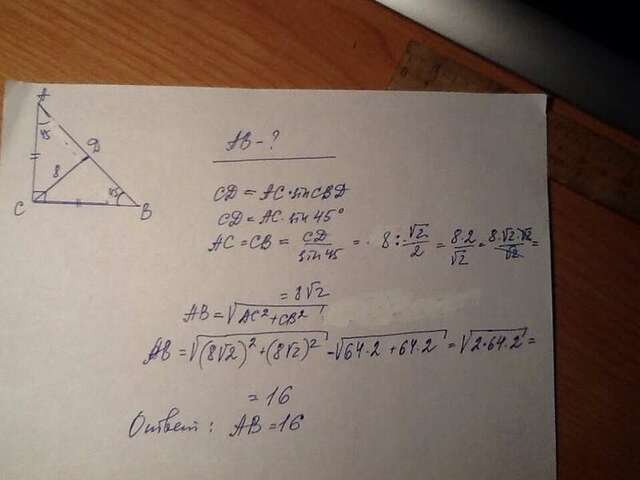 A
45
D
8
C
45
B
AB - ?
CD = AC · sin CBD
CD = AC · sin 45°
AC = CB = CD/sin 45 = 8 : √2/2 = 8·2/√2 = 8·√2·√2/√2 =
= 8√2
AB = √(AC² + CB²)
AB = √((8√2)² + (8√2)²) = √(64·2 + 64·2) = √(2·64·2) =
= 16
Ответ: AB = 16